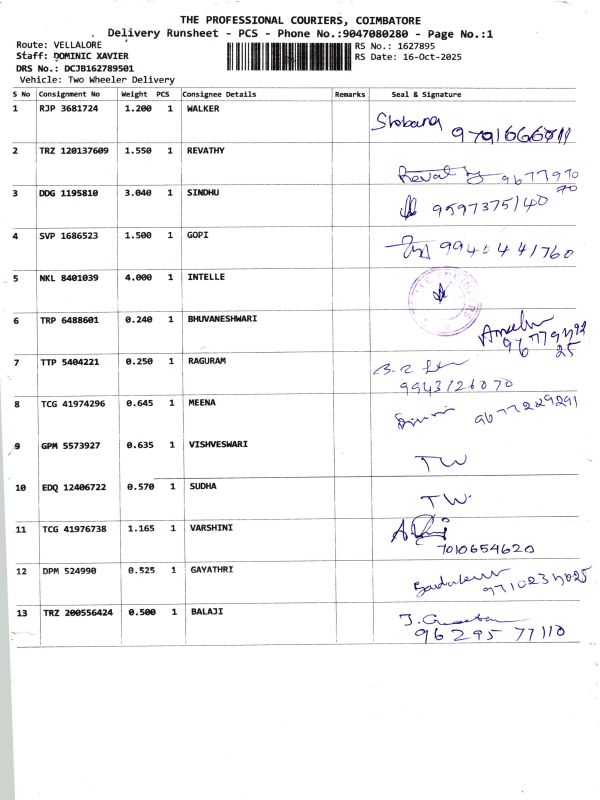 THE PROFESSIONAL COURIERS, COIMBATORE
Delivery Runsheet - PCS - Phone No.:9047080280 - Page No.:1
Route: VELLALORE
RS No.: 1627895
Staff: DOMINIC XAVIER
RS Date: 16-Oct-2025
DRS No.: DCJB162789501
Vehicle: Two Wheeler Delivery
S No Consignment No Weight PCS Consignee Details Remarks Seal & Signature
1 RJP 3681724 1.200 1 WALKER
Shobana
2 TRZ 120137609 1.550 1 REVATHY
Revathy 9677970
70
3 DDG 1195810 3.040 1 SINDHU
9597375140
4 SVP 1686523 1.500 1 GOPI
9940441760
5 NKL 8401039 4.000 1 INTELLE
6 TRP 6488601 0.240 1 BHUVANESHWARI
25
7 TTP 5404221 0.250 1 RAGURAM
9943126070
8 TCG 41974296 0.645 1 MEENA
9677229291
9 GPM 5573927 0.635 1 VISHVESWARI
TW
10 EDQ 12406722 0.570 1 SUDHA
TW.
11 TCG 41976738 1.165 1 VARSHINI
7010654620
12 DPM 524990 0.525 1 GAYATHRI
13 TRZ 200556424 0.500 1 BALAJI
96295 77110